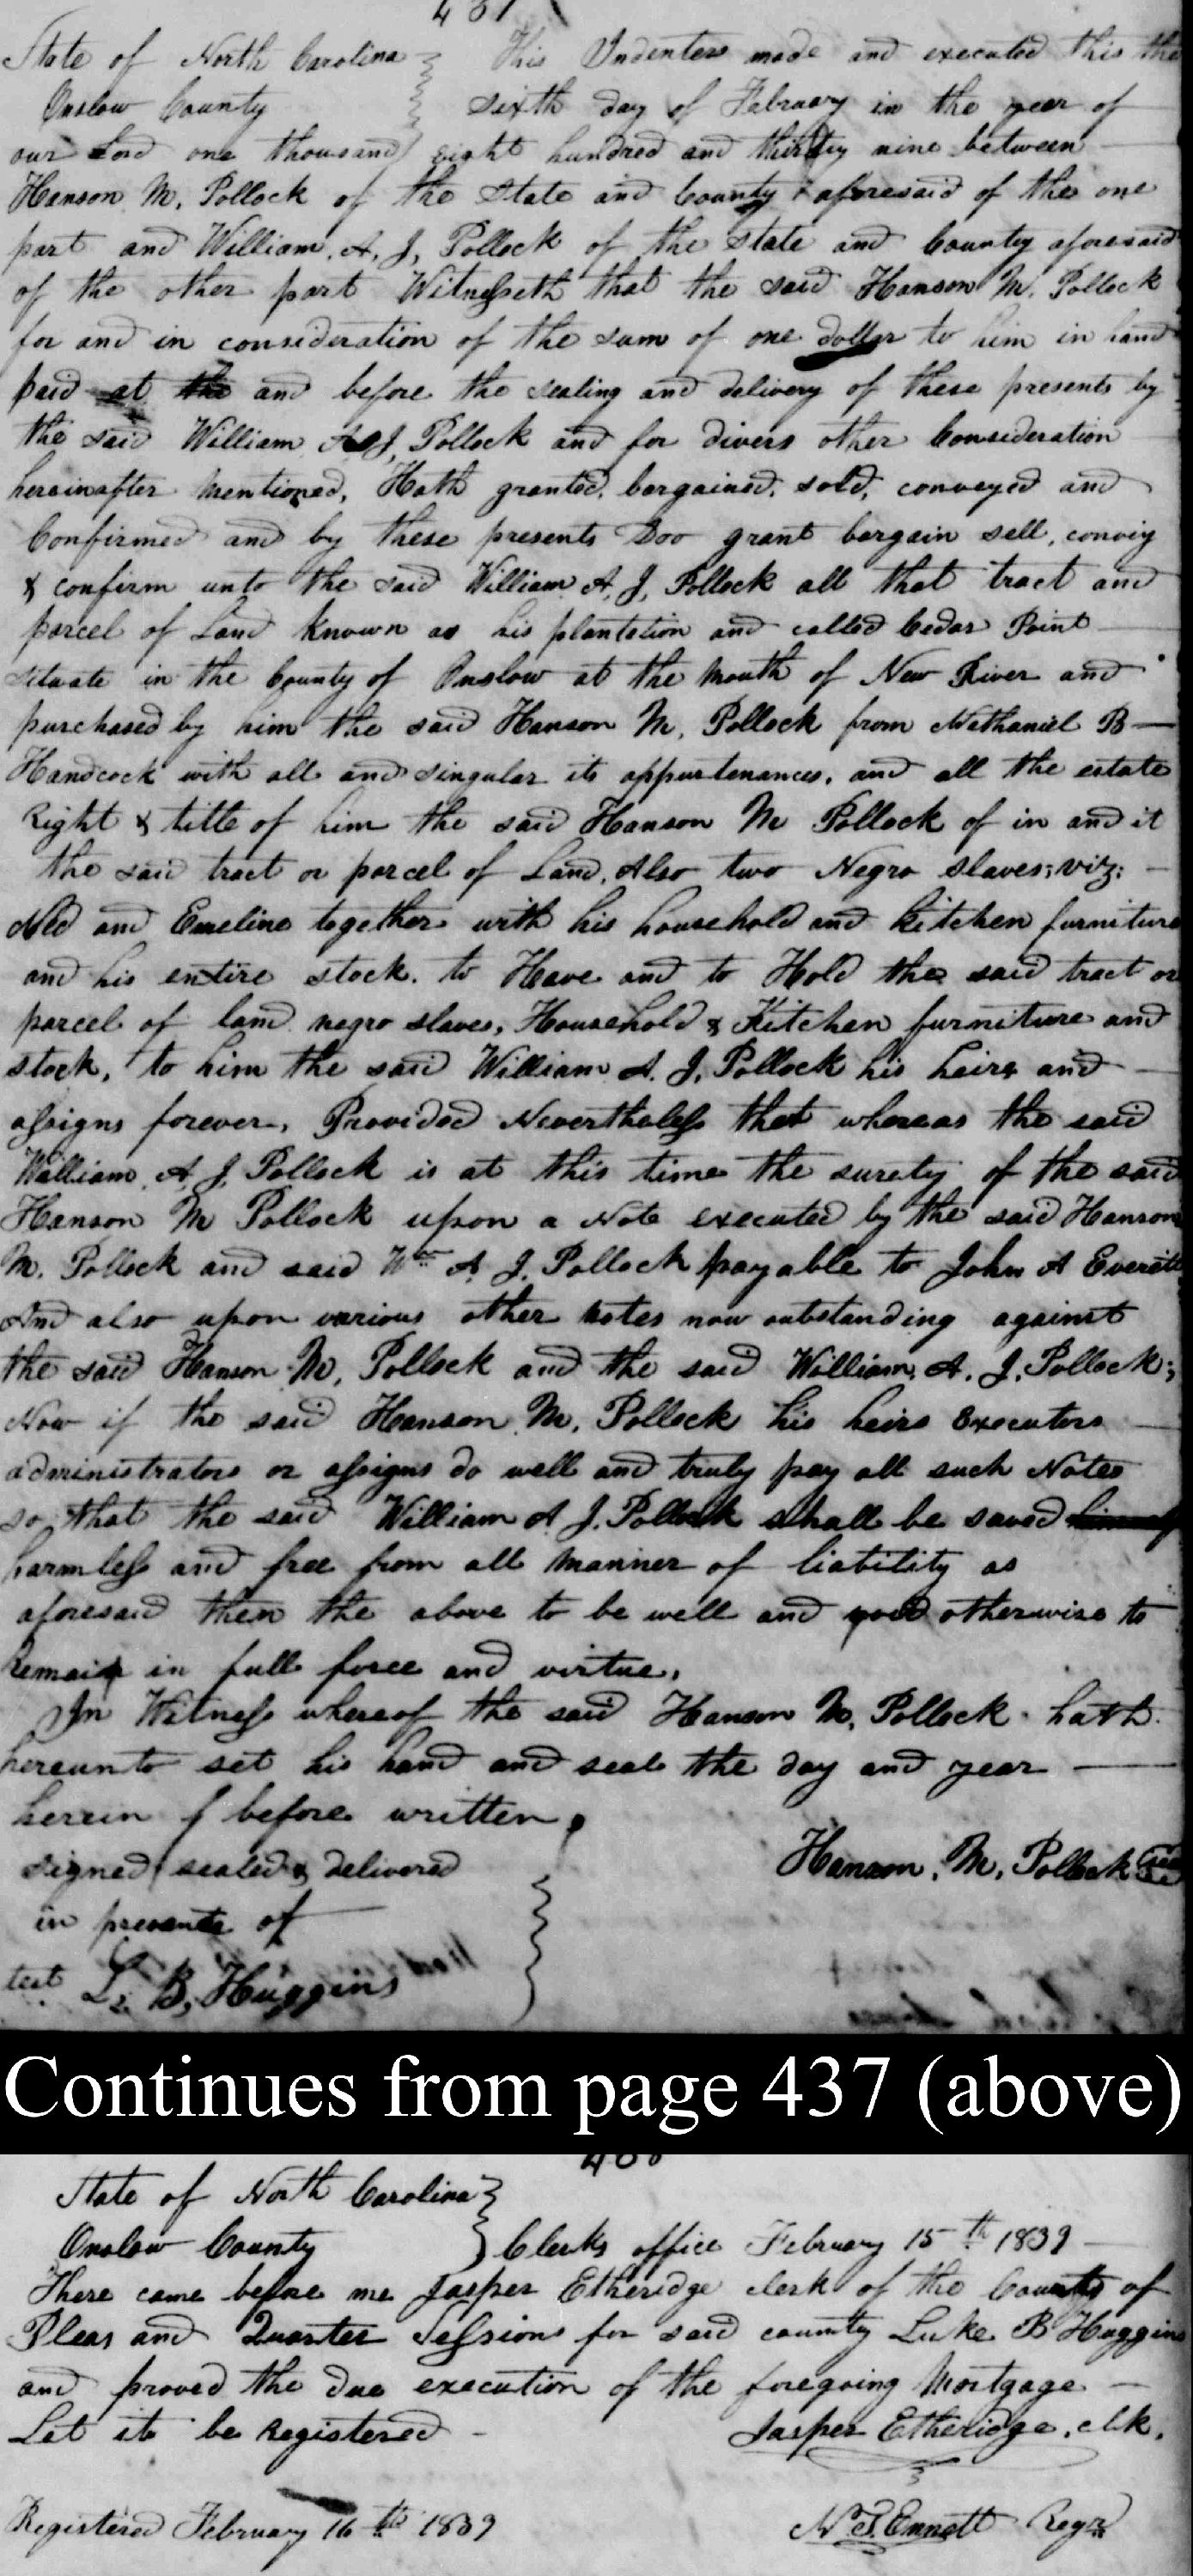 437
State of North Carolina This Indenters made and executed this the
Onslow County sixth day of February in the year of
our Lord one thousand eight hundred and thirty nine between
Hanson M. Pollock of the State and County aforesaid of the one
part and William A. J. Pollock of the State and County aforesaid
of the other part Witnesseth that the said Hanson M. Pollock
for and in consideration of the sum of one dollar to him in hand
paid at the and before the sealing and delivery of these presents by
the said William A. J. Pollock and for divers other Consideration
hereinafter Mentioned, Hath granted, bargained, sold, conveyed and
Confirmed and by these presents Doo grant bargain sell, convey
& confirm unto the said William A. J. Pollock all that tract and
parcel of Land known as his plantation and called Cedar Point
situate in the County of Onslow at the Mouth of New River and
purchased by him the said Hanson M. Pollock from Nathaniel B
Handcock with all and singular its appurtenances, and all the estate
Right & title of him the said Hanson M Pollock of in and it
the said tract or parcel of Land, Also two Negro slaves; viz;
Ned and Emeline together with his household and kitchen furniture
and his entire stock. to Have and to Hold the said tract or
parcel of land negro slaves, Household & Kitchen furniture and
stock, to him the said William A. J. Pollock his heirs and
assigns forever, Provided Nevertheless that whereas the said
William A. J. Pollock is at this time the surety of the said
Hanson M Pollock upon a Note executed by the said Hanson
M. Pollock and said Wm A J. Pollock payable to John A Everitt
And also upon various other Notes now outstanding against
the said Hanson M. Pollock and the said William A. J. Pollock;
Now if the said Hanson M. Pollock his heirs Executors
administrators or assigns do well and truly pay all such Notes
so that the said William A J. Pollock shall be saved
harmless and free from all Manner of liability as
aforesaid then the above to be well and void otherwise to
remain in full force and virtue.
In Witness whereof the said Hanson M. Pollock hath
hereunto set his hand and seal the day and year
herein before written.
signed sealed & delivered Hanson M. Pollock Seal
in presence of
test L. B. Huggins
Continues from page 437 (above)
438
State of North Carolina
Onslow County Clerks office February 15th 1839
There came before me Jasper Etheridge clerk of the County of
Pleas and Quarter Sessions for said county Luke B Huggins
and proved the due execution of the foregoing Mortgage
Let it be Registered Jasper Etheridge, clk.
Registered February 16th 1839 N T. Ennett Regr